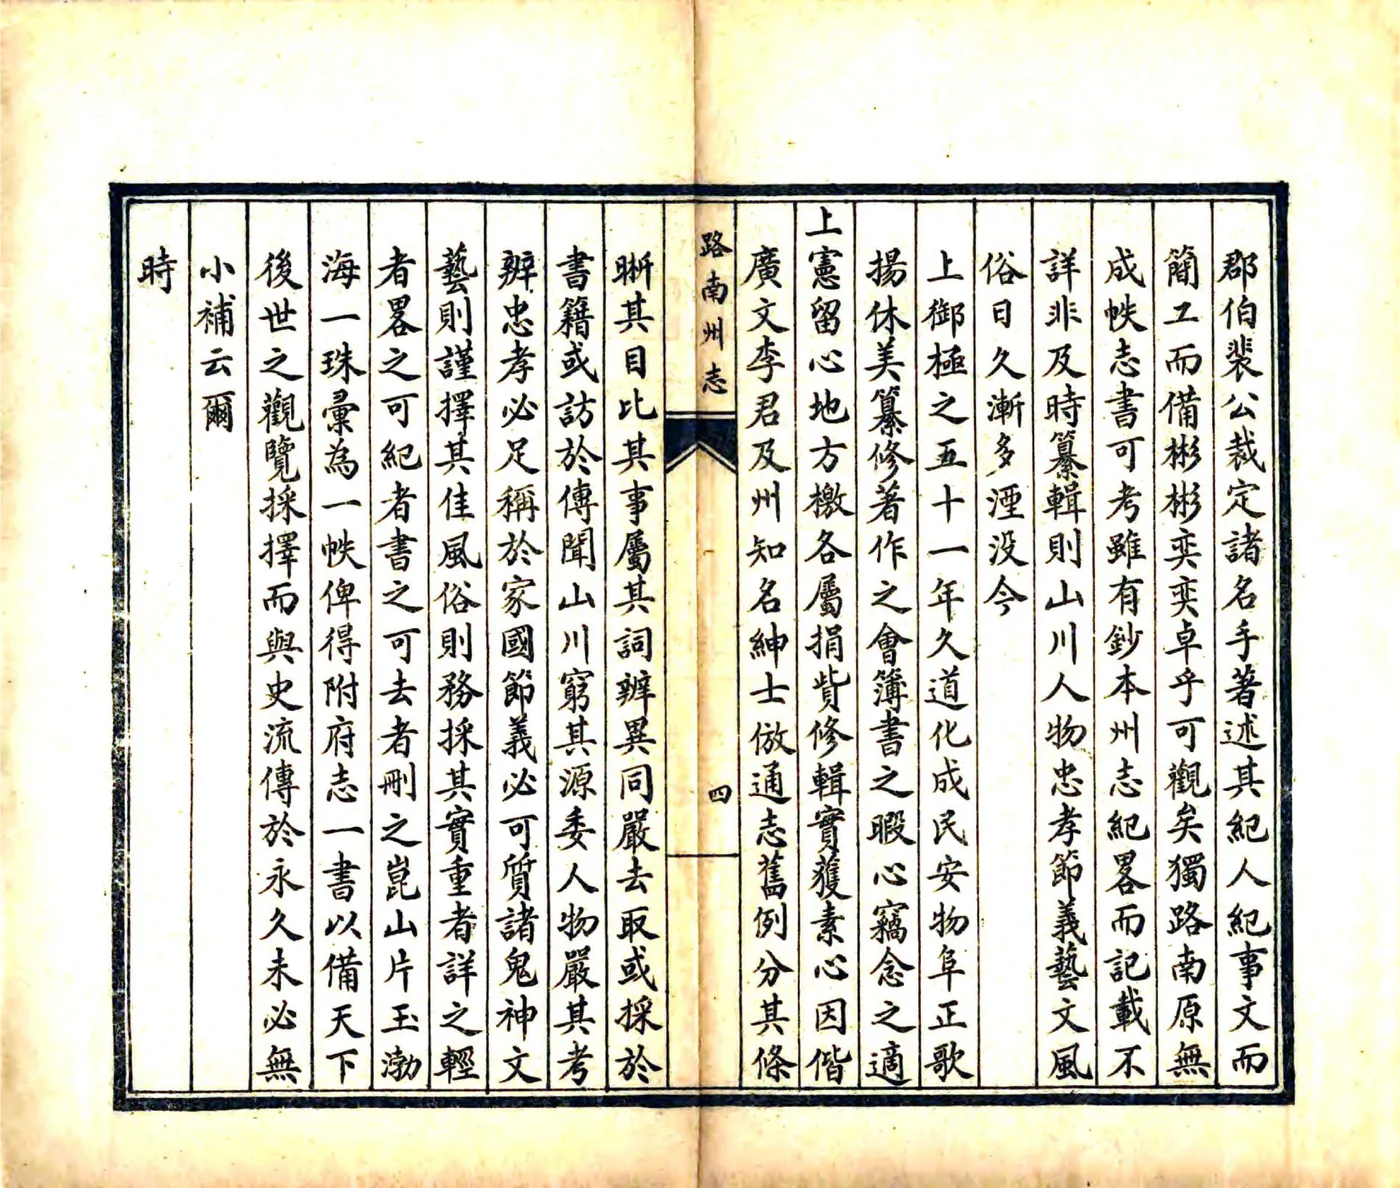 郡伯裴公裁定諸名手著述其紀人紀事文而
簡工而備彬彬奕奕卓乎可觀矣獨路南原無
成帙志書可考雖有鈔本州志紀畧而記載不
詳非及時纂輯則山川人物忠孝節義藝文風
俗日久漸多湮没今
上御極之五十一年久道化成民安物阜正歌
揚休美纂修著作之會簿書之暇心竊念之適
上憲留心地方檄各屬捐貲修輯實獲素心因偕
廣文李君及州知名紳士倣通志舊例分其條
路南州志
四
晰其目比其事屬其詞辨異同嚴去取或採於
書籍或訪於傳聞山川窮其源委人物嚴其考
辨忠孝必足稱於家國節義必可質諸鬼神文
藝則謹擇其佳風俗則務採其實重者詳之輕
者畧之可紀者書之可去者刪之崑山片玉渤
海一珠彙為一帙俾得附府志一書以備天下
後世之觀覽採擇而與史流傳於永久未必無
小補云爾
時